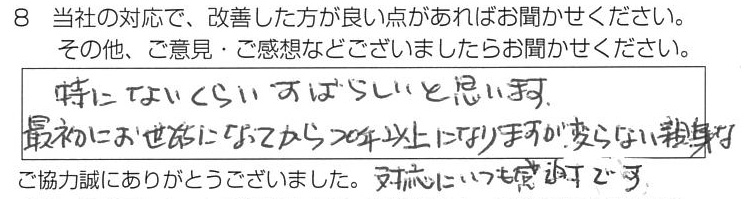 8 当社の対応で、改善した方が良い点があればお聞かせください。
その他、ご意見・ご感想などございましたらお聞かせください。
特にないくらいすばらしいと思います。
最初にお世話になってから20年以上になりますが、変らない親身な
ご協力誠にありがとうございました。 対応にいつも感謝です